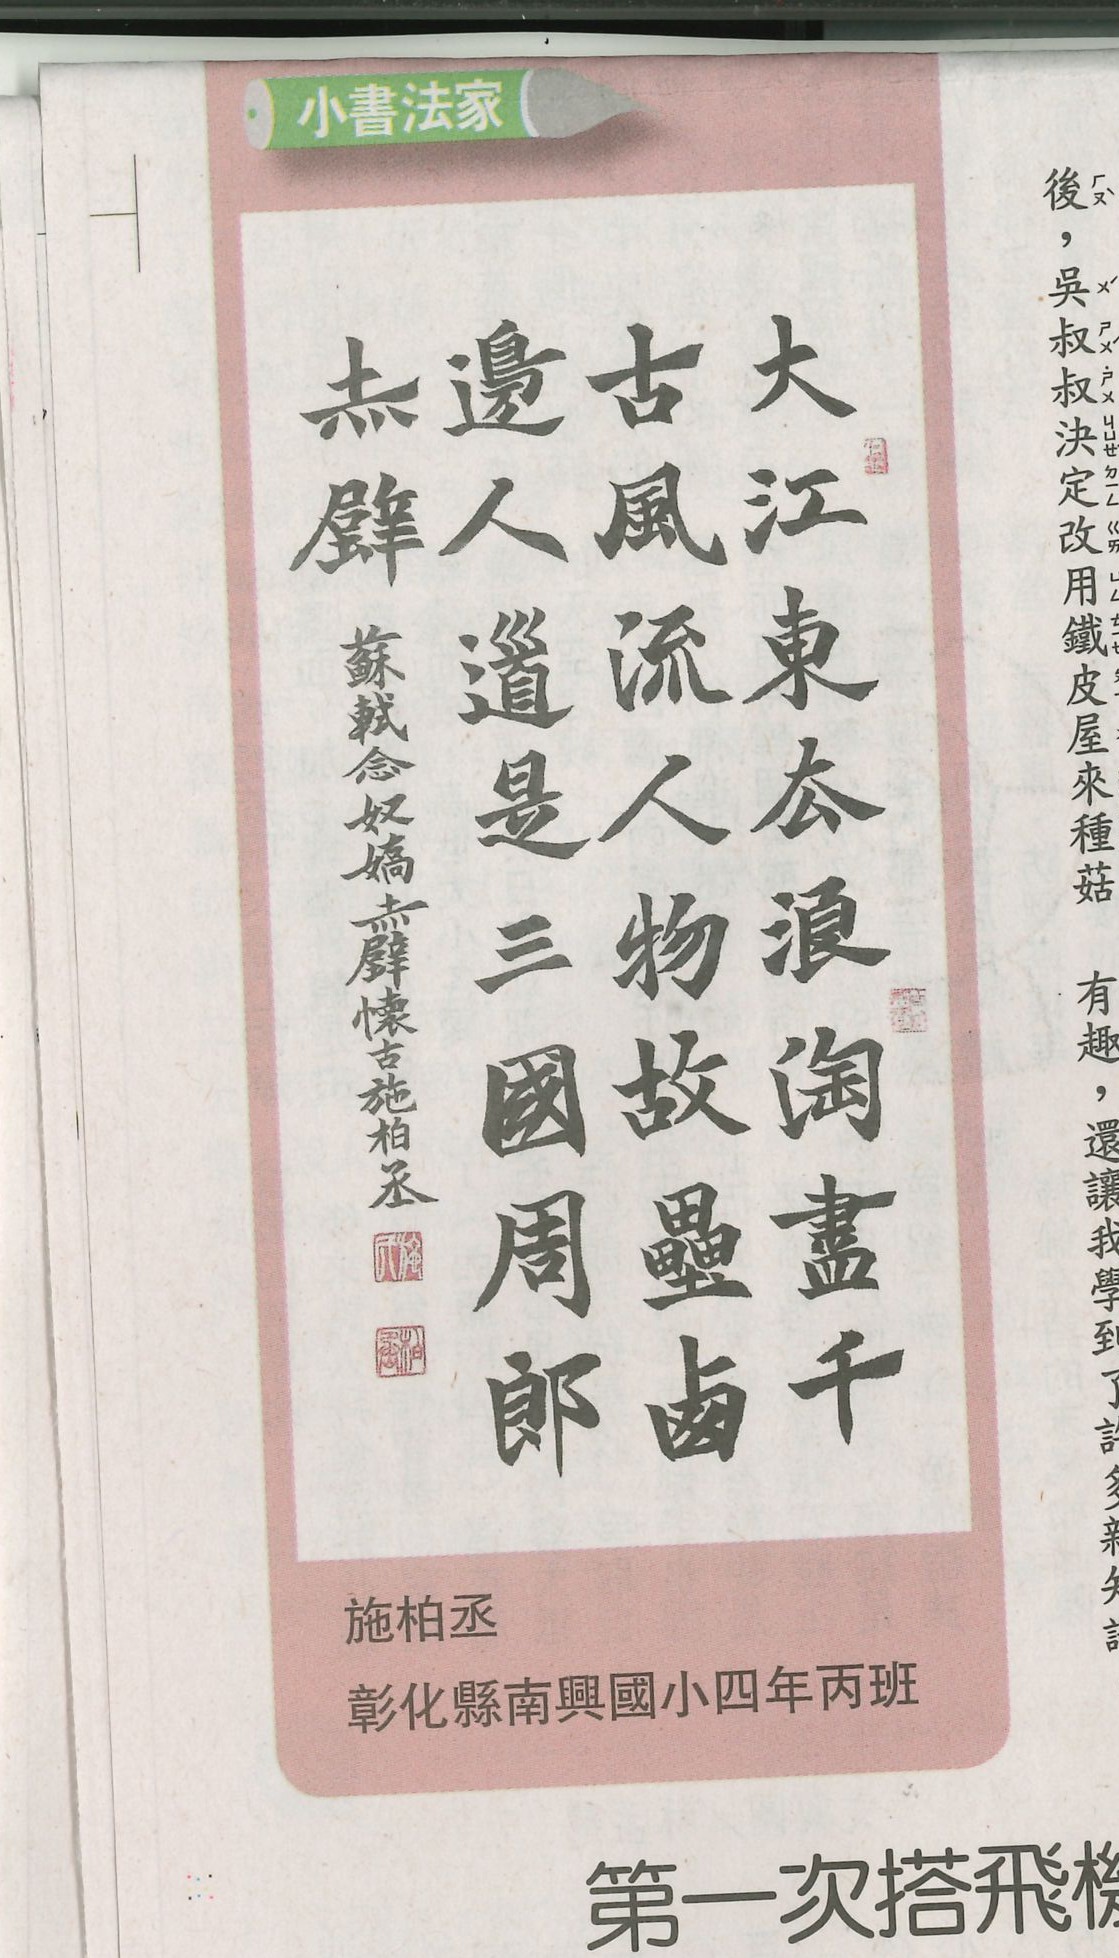 小書法家
後，吳叔叔決定改用鐵皮屋來種菇
有趣，還讓我學到了許多新知
大江東去浪淘盡千
古風流人物故壘西
邊人道是三國周郎
赤壁
蘇軾念奴嬌赤壁懷古施柏丞
施柏丞
彰化縣南興國小四年丙班
第一次搭飛機